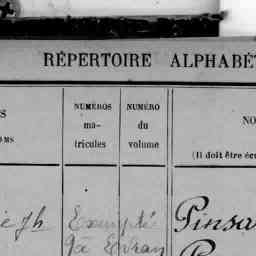 RÉPERTOIRE ALPHABÉ
S
OMS
NUMÉROS
ma-
tricules
NUMÉRO
du
volume
NO
(Il doit être écr
Jh
Exempté
Pinsa